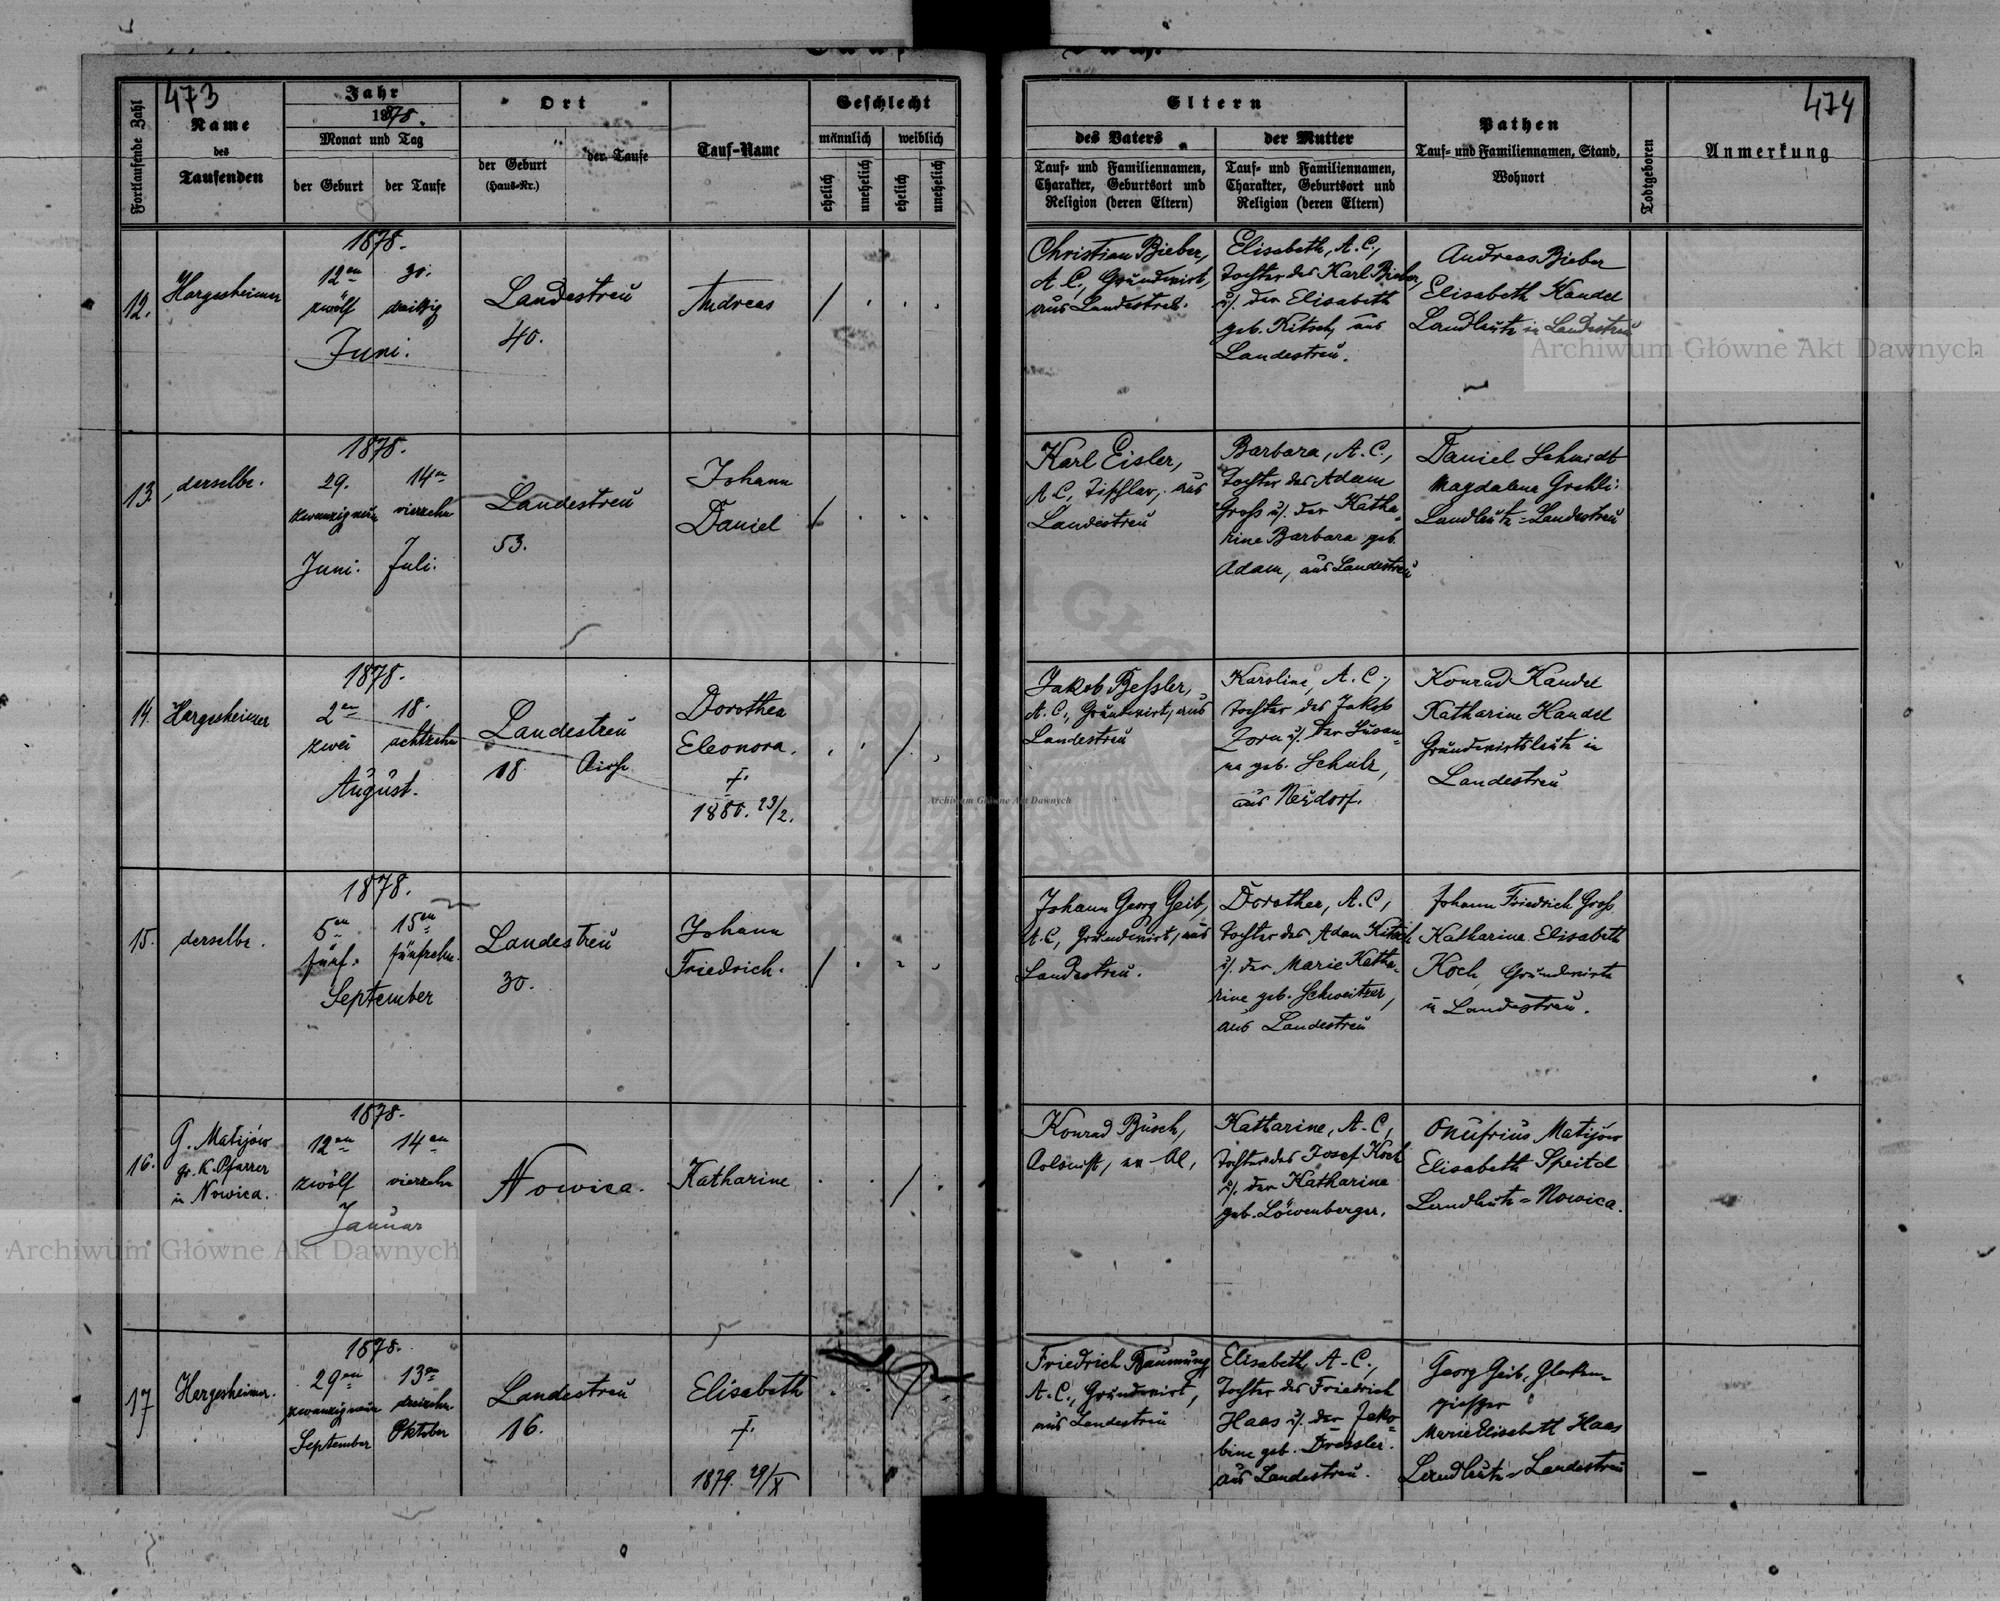 473
474
Fortlaufende Zahl
Name
des
Taufenden
Jahr
1878.
Monat und Tag
der Geburt
der Taufe
Ort
der Geburt
(Haus-Nr.)
der Taufe
Tauf-Name
Geschlecht
männlich
weiblich
ehelich
unehelich
ehelich
unehelich
Eltern
des Vaters
der Mutter
Tauf- und Familiennamen,
Charakter, Geburtsort und
Religion (deren Eltern)
Tauf- und Familiennamen,
Charakter, Geburtsort und
Religion (deren Eltern)
Pathen
Tauf- und Familiennamen, Stand,
Wohnort
Todtgeboren
Anmerkung
12.
Hargesheimer
1878.
12en
30.
zwölf
dreißig
Juni.
Landestreu
40.
Andreas
/
Christian Bieber,
A.C., Grundwirt,
aus Landestreu.
Elisabeth, A.C.,
Tochter des Karl Bieber
u. der Elisabeth
geb. Kitsch, aus
Landestreu.
Andreas Bieber
Elisabeth Kandel
Landleute in Landestreu
13.
derselbe.
1878.
29.
14en
zwanzigneun
vierzehn
Juni.
Juli.
Landestreu
53.
Johann
Daniel
/
Karl Eisler,
A.C., Tischler, aus
Landestreu
Barbara, A.C.,
Tochter des Adam
Groß u. der Katha-
rine Barbara geb.
Adam, aus Landestreu
Daniel Schmidt
Magdalena
Landleute = Landestreu
14.
Hargesheimer
1878.
2en
18.
zwei
achtzehn
August.
Landestreu
18
Dorothea
Eleonora.
†
1880. 23/2.
/
Jakob Beßler,
A.C., Grundwirt, aus
Landestreu
Karoline, A.C.,
Tochter des Jakob
Zorn u. der Susan-
na geb. Schulz,
aus Neudorf.
Konrad Kandel
Katharine Kandel
Grundwirtsleute in
Landestreu
15.
derselbe.
1878.
5en
15en
fünf.
fünfzehn.
September
Landestreu
30.
Johann
Friedrich.
/
Johann Georg Geib,
A.C., Grundwirt, aus
Landestreu.
Dorothea, A.C.,
Tochter des Adam Kitsch
u. der Marie Katha-
rine geb. Schweitzer,
aus Landestreu
Johann Friedrich Groß
Katharina Elisabeth
Koch, Grundwirte
in Landestreu.
16.
G. Matijów
gr. K. Pfarrer
in Nowica.
1878.
12en
14en
zwölf
vierzehn
Januar
Nowica.
Katharine
/
Konrad Busch,
Colonist,
Katharine, A.C.,
Tochter des Josef Koch
u. der Katharine
geb. Löwenberger.
Onufrius Matijów
Elisabeth Speitel
Landleute = Nowica.
17
Hargesheimer.
1878.
29en
13en
zwanzigneun
dreizehn
September
Oktober
Landestreu
16.
Elisabeth
†
1879. 29/X
/
Friedrich Baumung
A.C., Grundwirt,
aus Landestreu
Elisabeth, A.C.,
Tochter des Friedrich
Haas u. der Jako-
bine geb. Dressler.
aus Landestreu.
Georg Geib, Glocken-
giesser
Marie Elisabeth Haas
Landleute = Landestreu
Archiwum Główne Akt Dawnych
Archiwum Główne Akt Dawnych
Archiwum Główne Akt Dawnych